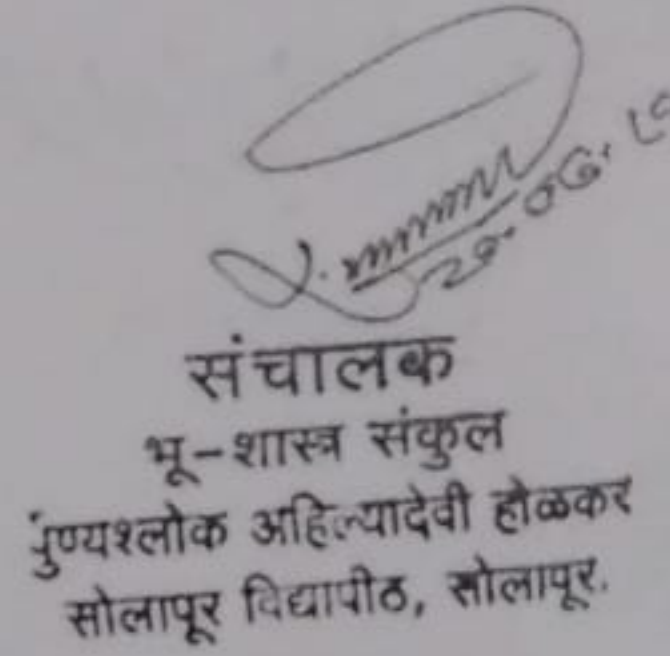 संचालक
भू-शास्त्र संकुल
पुंण्यश्लोक अहिल्यादेवी होळकर
सोलापूर विद्यापीठ, सोलापूर.